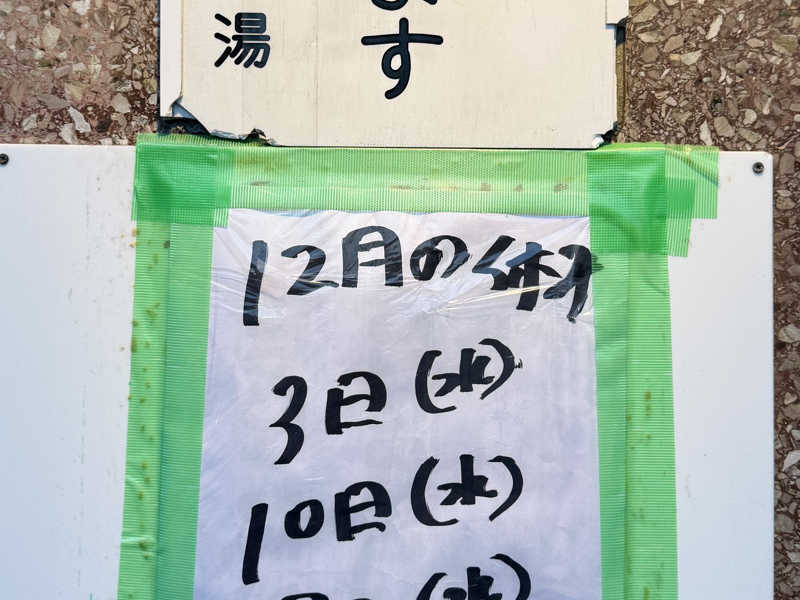 湯
す
12月の休み
3日(水)
10日(水)
日(水)